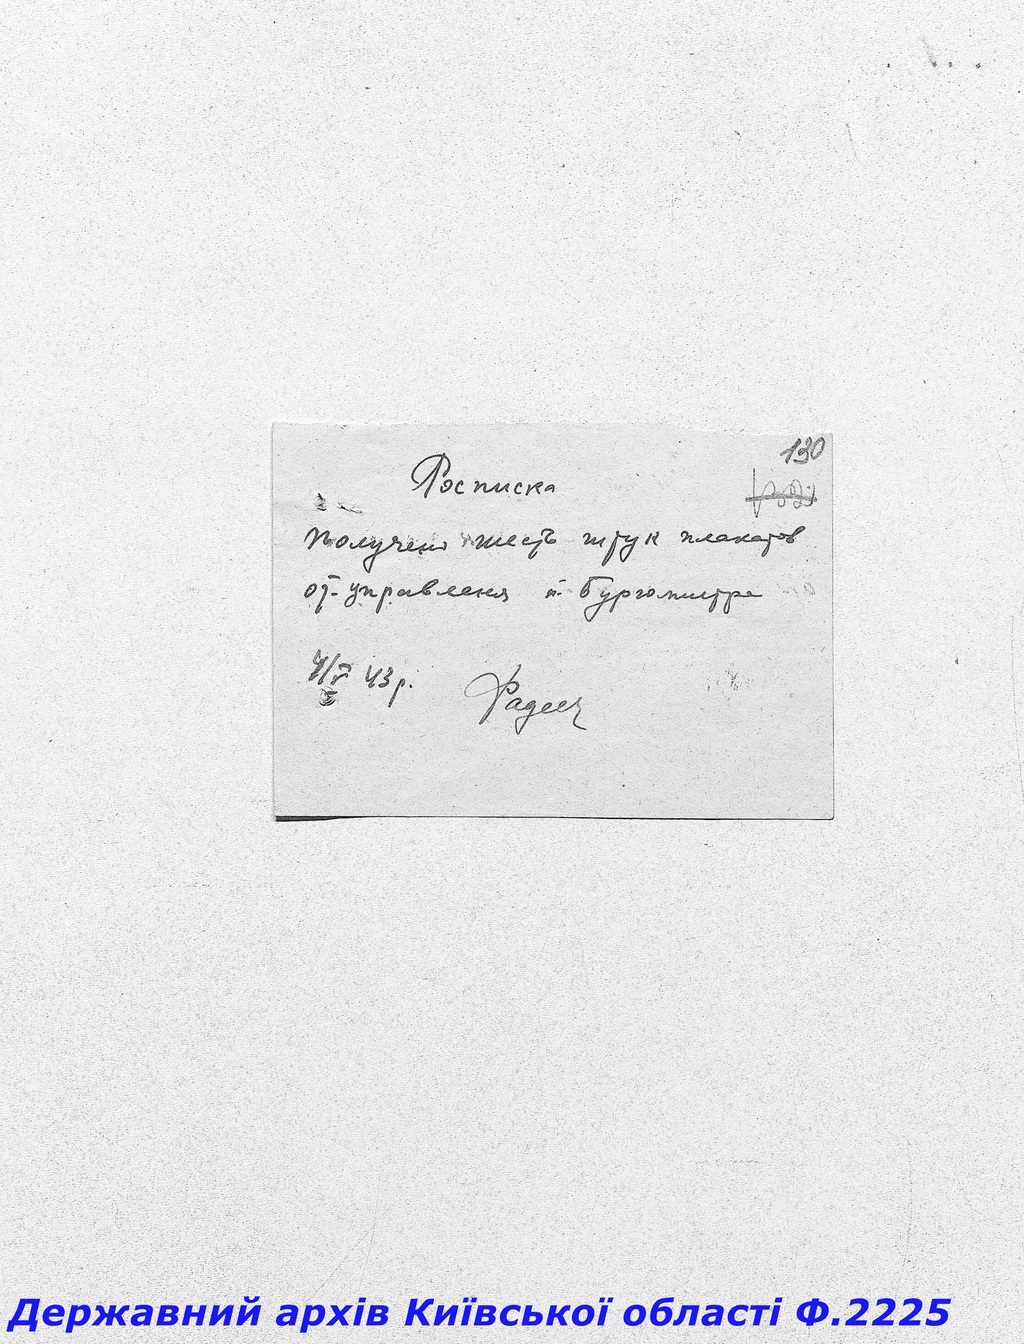 130
Росписка
Получено шесть штук плакатов
от управленя Бургомистра
4/V 43 р.
Державний архів Київської області Ф.2225